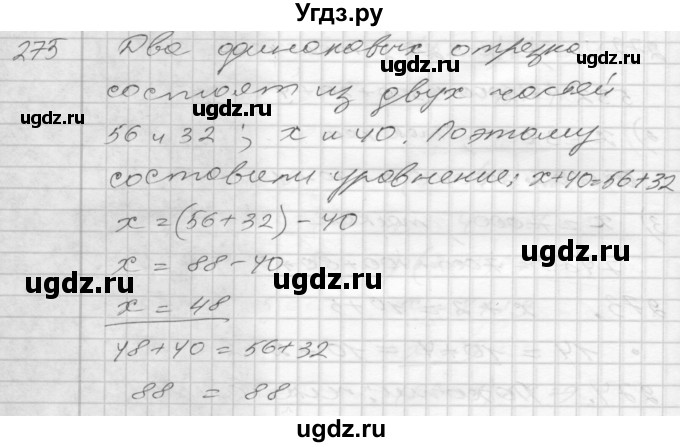 Угдз.ру
275 Два одинаковых отрезка
ugdz.ru ugdz.ru
состоят из двух частей
ugdz.ru ugdz.ru
56 и 32 ; х и 40. Поэтому
ugdz.ru
составили уравнение: х+40=56+32
х = (56+32) - 40
ugdz.ru
х = 88 - 40
ugdz.ru ugdz.ru
х = 48
ugdz.ru
48+40 = 56+32
88 = 88
ugdz.ru ugdz.ru
ugdz.ru